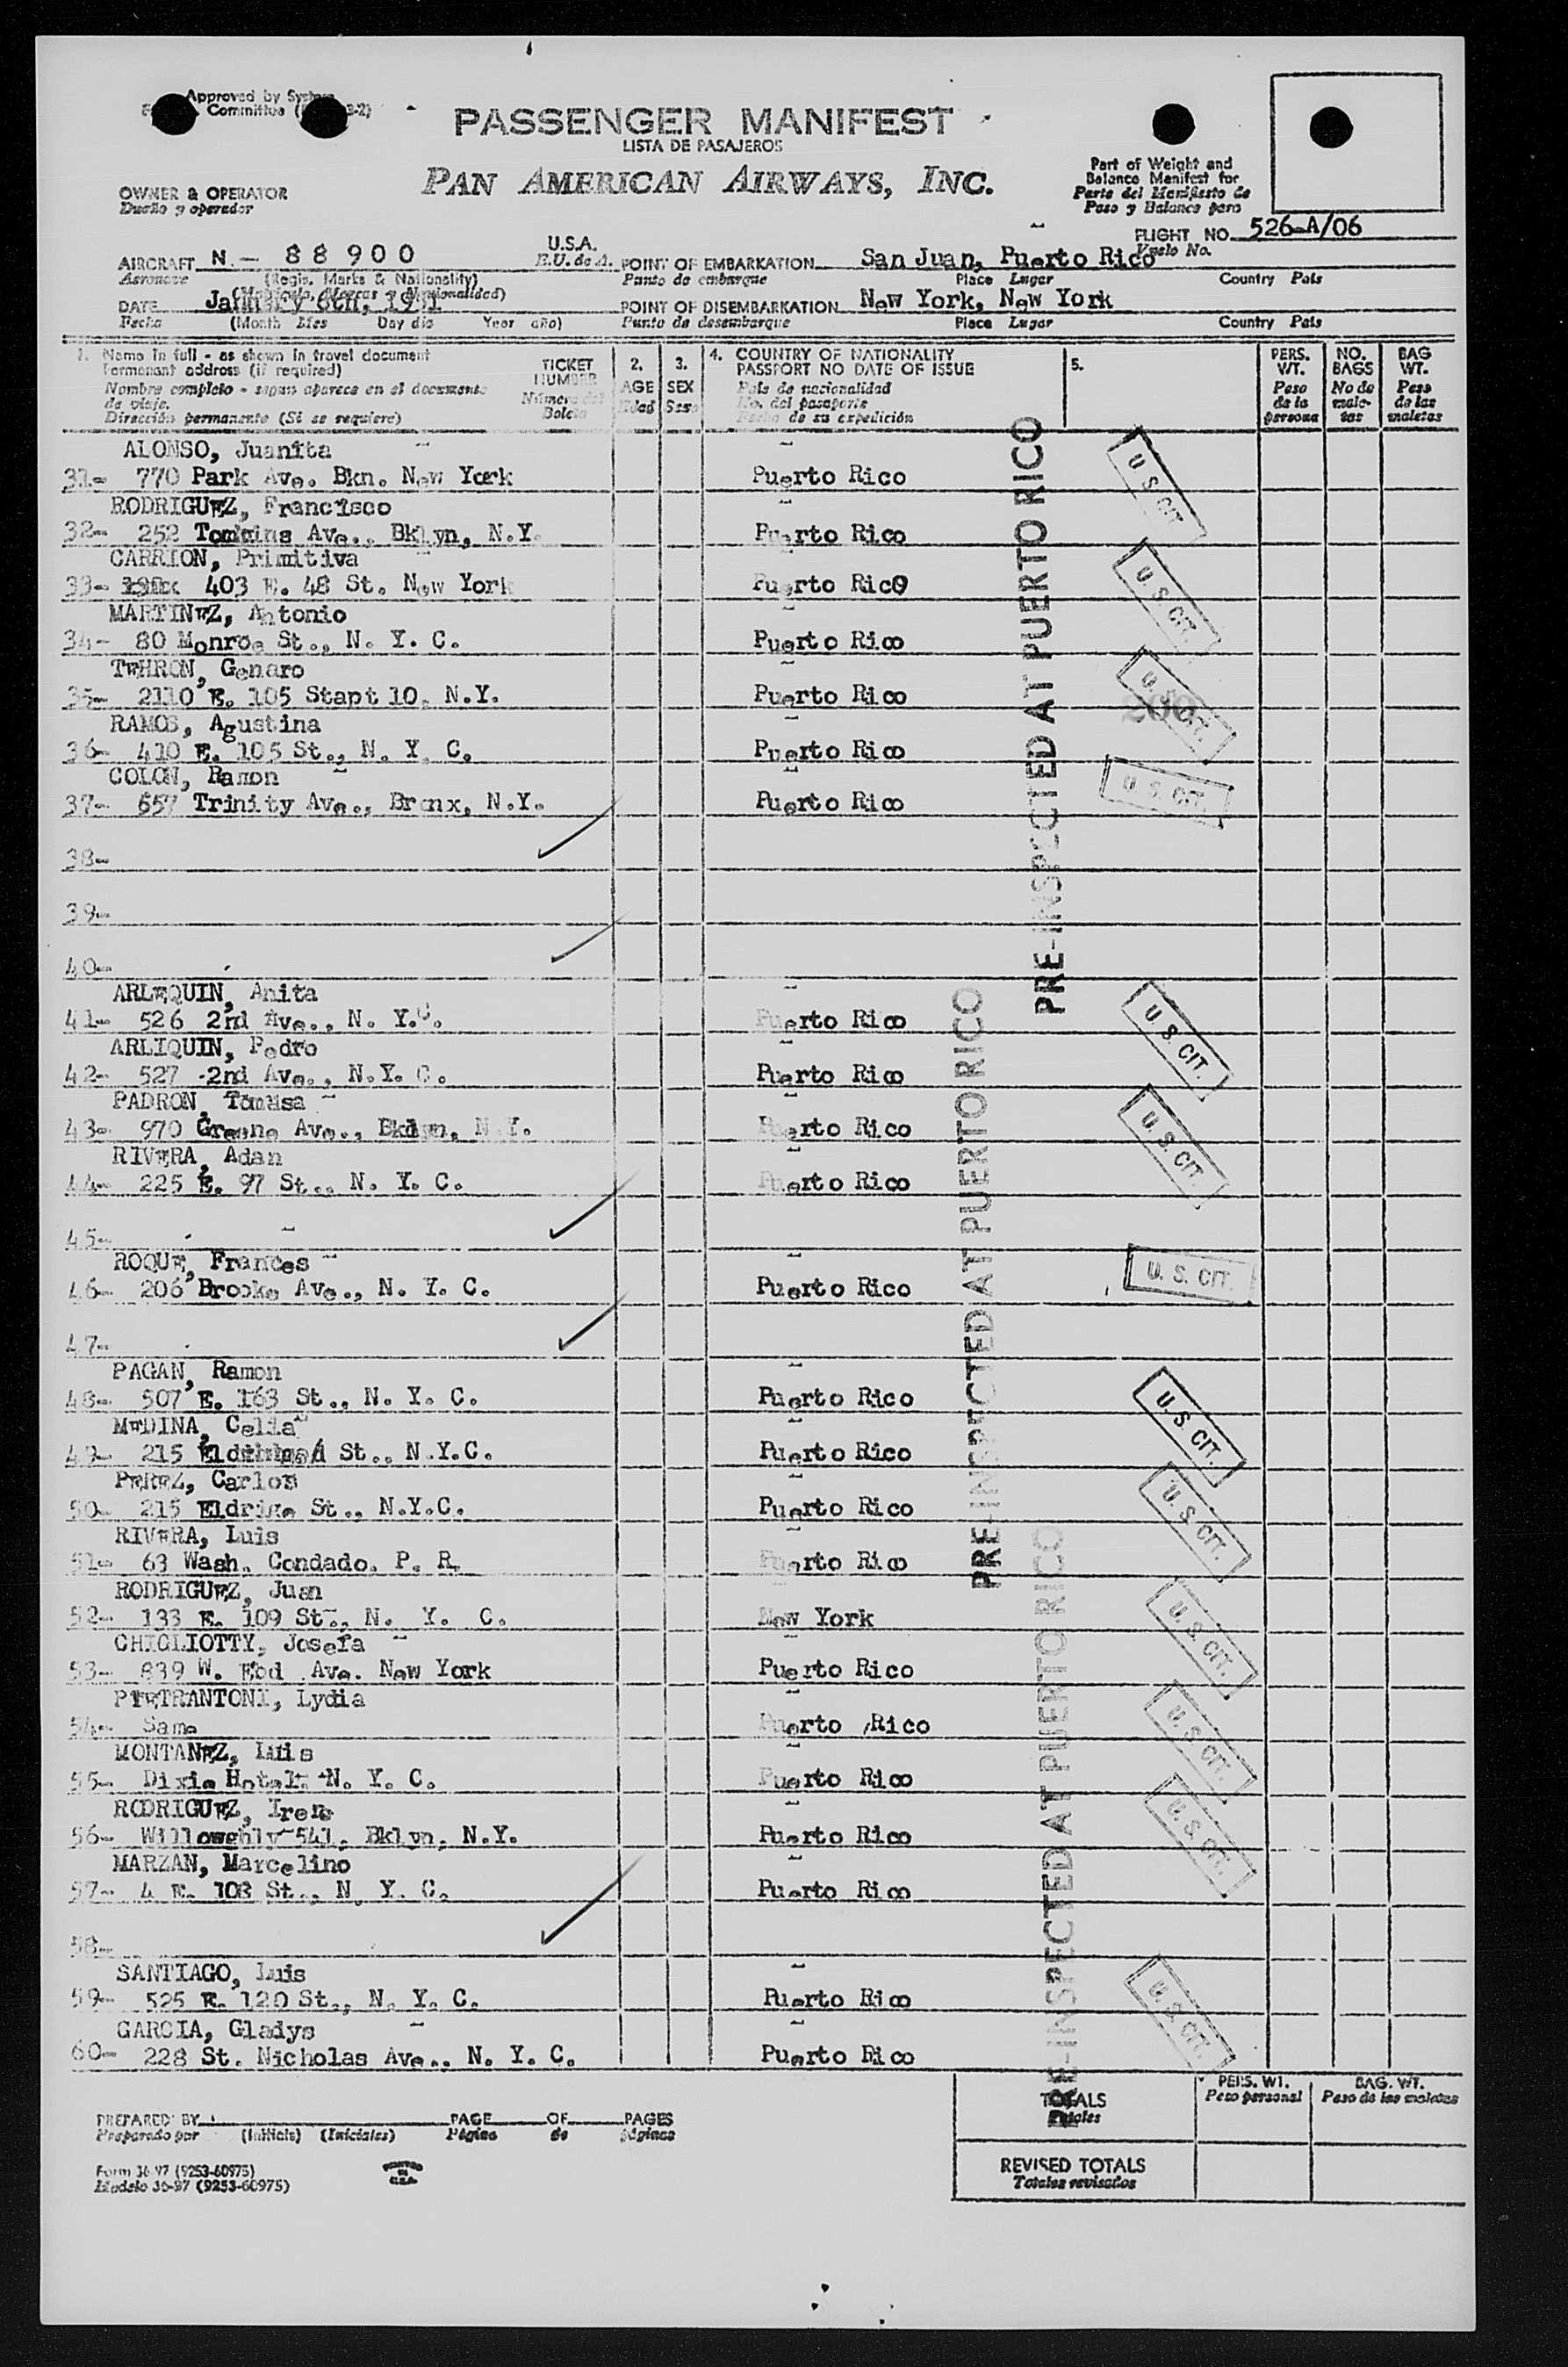 Approved by
Committee 3-2)
PASSENGER MANIFEST
LISTA DE PASAJEROS
PAN AMERICAN AIRWAYS, INC.
Part of Weight and
Balance Manifest for
Parte del Manifiesto de
Peso y Balance para
OWNER & OPERATOR
Dueño y operador
FLIGHT NO. 526-A/06
Vuelo No.
AIRCRAFT N - 88900 U.S.A. POINT OF EMBARKATION San Juan, Puerto Rico
Aeronave (Regis. Marks & Nationality) E.U. de A. Punto de embarque Place Lugar Country País
(Matrícula, Marcas y Nacionalidad)
DATE January 6th, 1951 POINT OF DISEMBARKATION New York, New York
Fecha (Month Mes Day dia Year año) Punto de desembarque Place Lugar Country País
1. Name in full - as shown in travel document
Permanent address (if required)
Nombre completo - segun aparece en el documento
de viaje.
Dirección permanente (Si se requiere)
TICKET
NUMBER
Número del
Boleto
2.
AGE
Edad
3.
SEX
Sexo
4. COUNTRY OF NATIONALITY
PASSPORT NO DATE OF ISSUE
País de nacionalidad
No. del pasaporte
Fecha de su expedición
5.
PERS.
WT.
Peso
de la
persona
NO.
BAGS
No de
male-
tas
BAG
WT.
Peso
de las
maletas
ALONSO, Juanita
31- 770 Park Ave. Bkn. New York Puerto Rico
RODRIGUEZ, Francisco
32- 252 Tomkins Ave., Bklyn, N.Y. Puerto Rico
CARRION, Primitiva
33- 403 E. 48 St. New York Puerto Rico
MARTINEZ, Antonio
34- 80 Monroe St., N. Y. C. Puerto Rico
TEHRON, Genaro
35- 2110 E. 105 Stapt 10, N.Y. Puerto Rico
RAMOS, Agustina
36- 410 E. 105 St., N. Y. C. Puerto Rico
COLON, Ramon
37- 657 Trinity Ave., Bronx, N.Y. Puerto Rico
38-
39-
40-
ARLEQUIN, Anita
41- 526 2nd Ave., N. Y.C. Puerto Rico
ARLIQUIN, Pedro
42- 527 2nd Ave., N.Y. C. Puerto Rico
PADRON, Tomasa
43- 970 Greene Ave., Bklyn, N.Y. Puerto Rico
RIVERA, Adan
44- 225 E. 97 St., N. Y. C. Puerto Rico
45-
ROQUE, Frances
46- 206 Brooke Ave., N. Y. C. Puerto Rico
47-
PAGAN, Ramon
48- 507 E. 163 St., N. Y. C. Puerto Rico
MEDINA, Celia
49- 215 St., N.Y.C. Puerto Rico
PEREZ, Carlos
50- 215 Eldrige St., N.Y.C. Puerto Rico
RIVERA, Luis
51- 63 Wash. Condado, P. R. Puerto Rico
RODRIGUEZ, Juan
52- 133 E. 109 St., N. Y. C. New York
GHIGLIOTTY, Josefa
53- 839 W. End Ave. New York Puerto Rico
PIETRANTONI, Lydia
54- Same Puerto Rico
MONTANEZ, Luis
55- Dixie Hotel, N. Y. C. Puerto Rico
RODRIGUEZ, Irene
56- Willowghly 541, Bklyn, N.Y. Puerto Rico
MARZAN, Marcelino
57- 4 E. 108 St., N. Y. C. Puerto Rico
58-
SANTIAGO, Luis
59- 525 E. 120 St., N. Y. C. Puerto Rico
GARCIA, Gladys
60- 228 St. Nicholas Ave., N. Y. C. Puerto Rico
PRE-INSPECTED AT PUERTO RICO
PRE-INSPECTED AT PUERTO RICO
PRE-INSPECTED AT PUERTO RICO
U. S. CIT.
U. S. CIT.
U. S. CIT.
U. S. CIT.
U. S. CIT.
U. S. CIT.
U. S. CIT.
U. S. CIT.
U. S. CIT.
U. S. CIT.
U. S. CIT.
U. S. CIT.
U. S. CIT.
PREPARED BY PAGE OF PAGES
Preparado por (Initials) (Iniciales) Página de páginas
TOTALS
Totales
PERS. WT.
Peso personal
BAG. WT.
Peso de las maletas
REVISED TOTALS
Totales revisados
Form 36-97 (9253-60975)
Modelo 36-97 (9253-60975)
PRINTED
IN
U.S.A.